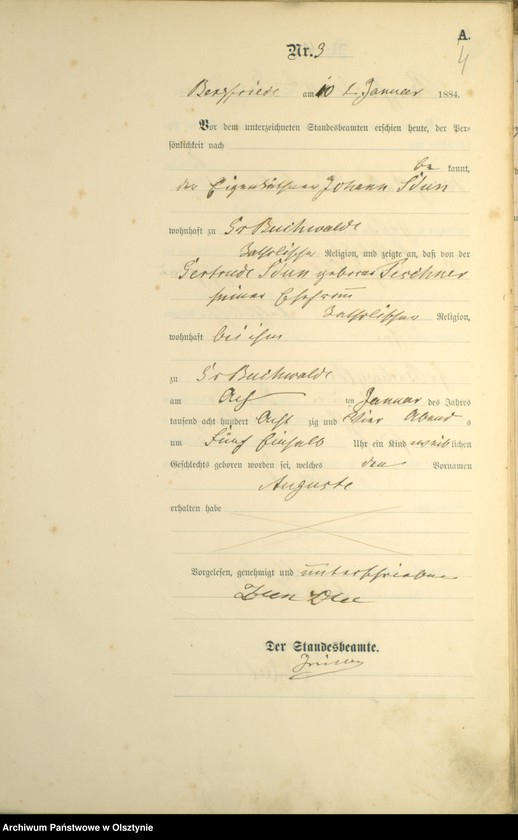 A.
4
Nr. 3
Bergfriede am 10 t. Januar 1884.
Vor dem unterzeichneten Standesbeamten erschien heute, der Per-
sönlichkeit nach
be kannt,
der Eigenkäthner Johann
wohnhaft zu Gr Buchwalde
katholischer Religion, und zeigte an, daß von der
Gertrude geborene
seiner Ehefrau
katholischer Religion,
wohnhaft bei ihm
zu Gr Buchwalde
am Acht ten Januar des Jahres
tausend acht hundert Acht zig und Vier Abend s
um Fünf Einhalb Uhr ein Kind weib lichen
Geschlechts geboren worden sei, welches den Vornamen
Auguste
erhalten habe
Vorgelesen, genehmigt und unterschrieben
Der Standesbeamte.
Archiwum Państwowe w Olsztynie